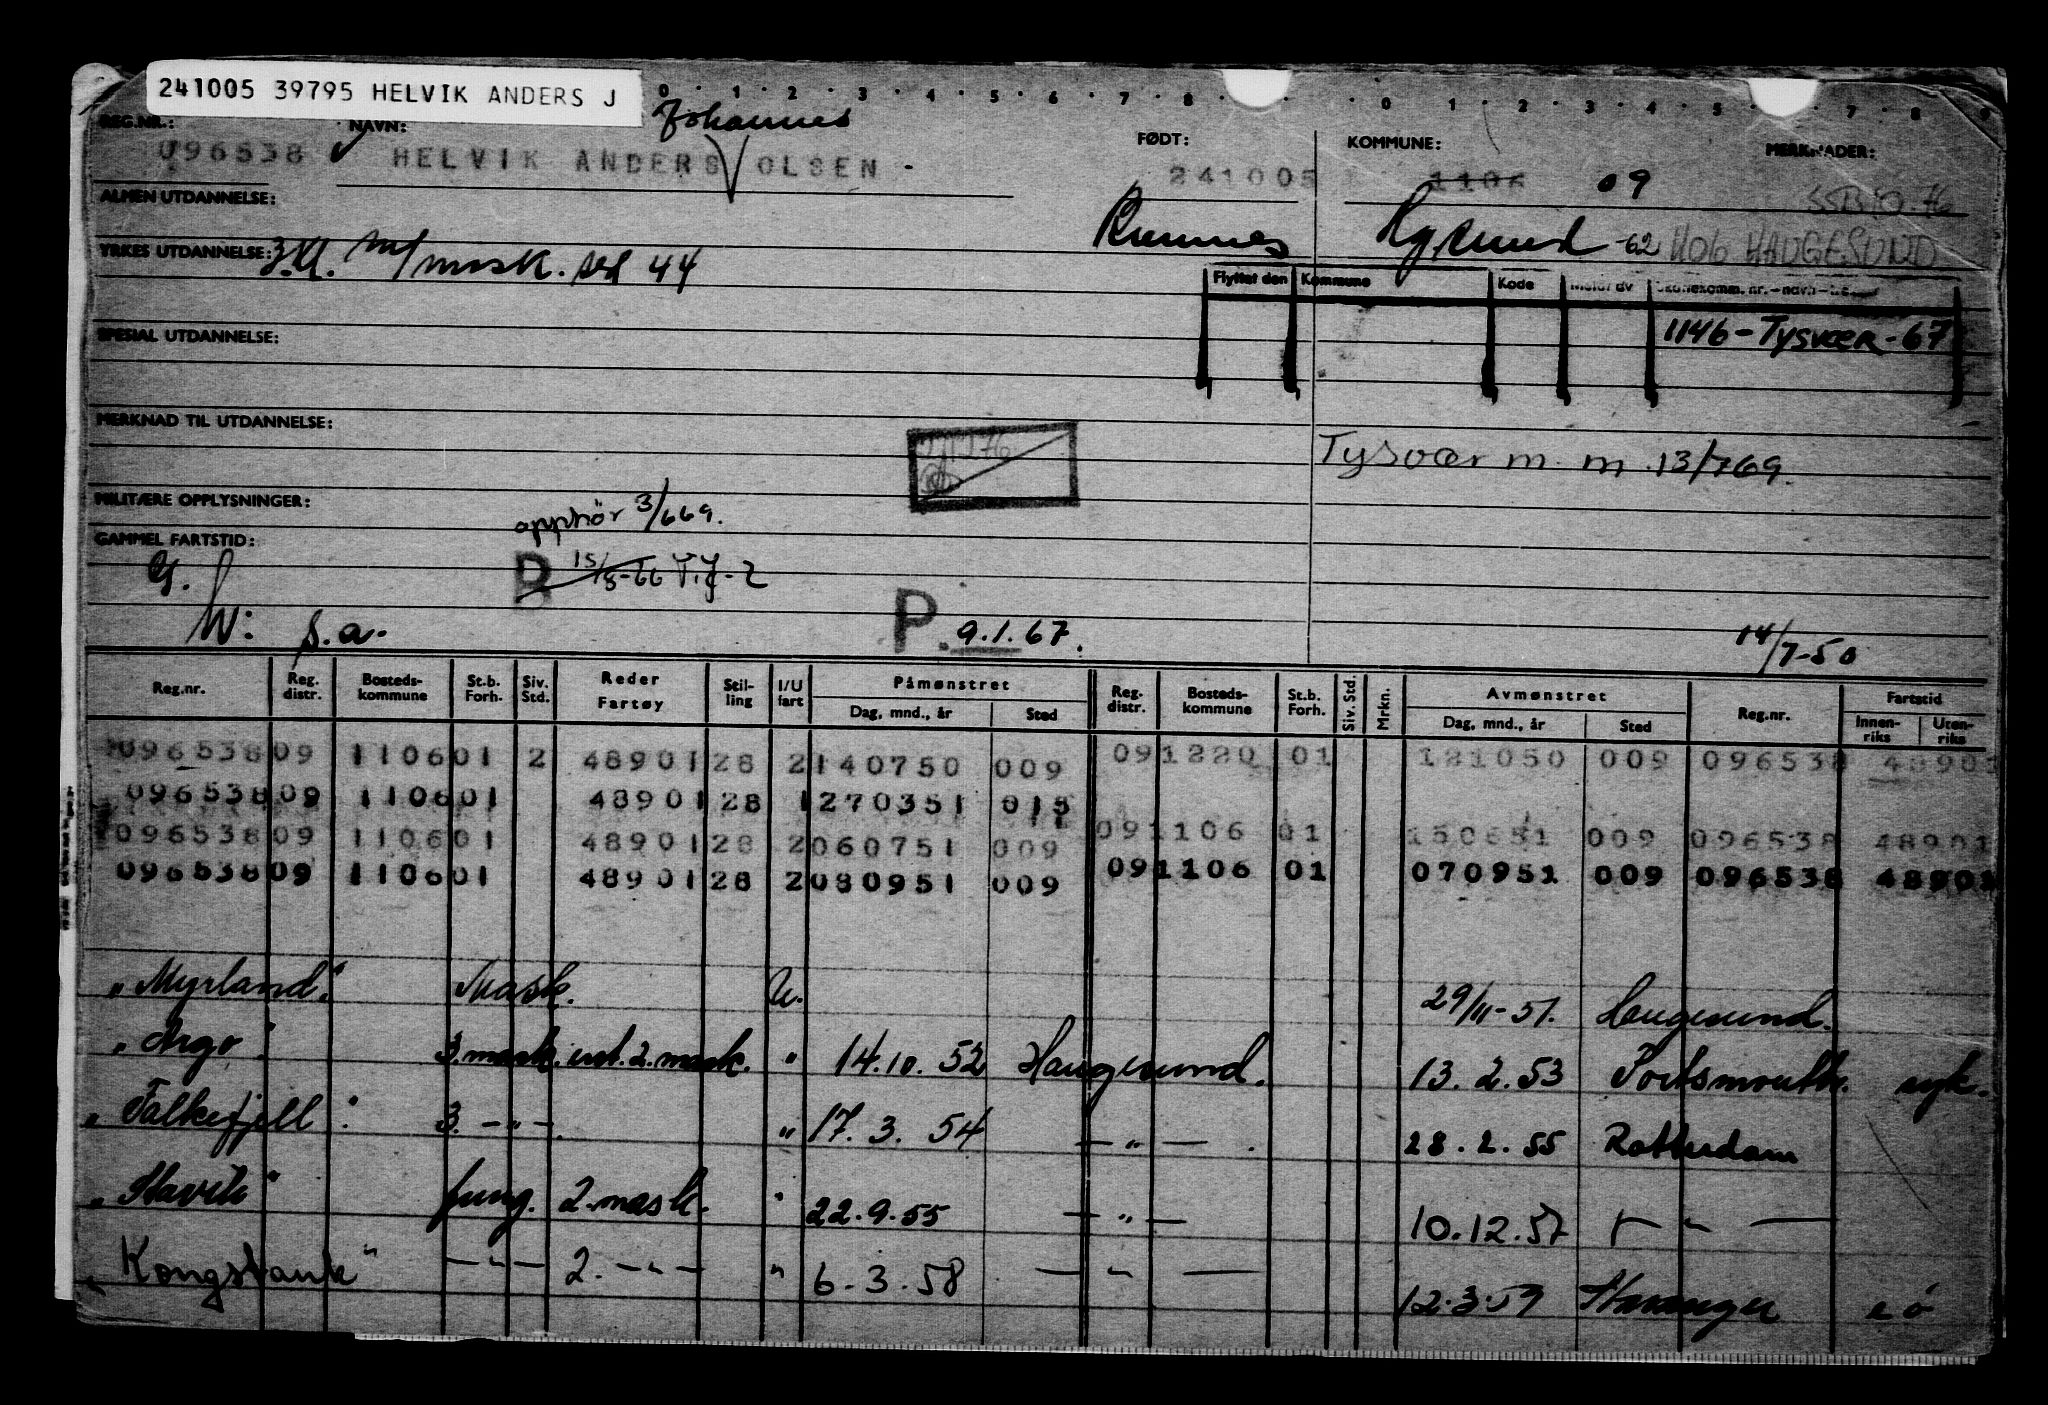 241005 39795 HELVIK ANDERS J
0 . 1 . 2 . 3 . 4 . 5 . 6 . 7 . 8 . 0 1 . 2 . 3 . 4 . 5 . 7 . 8 . 9
REG.NR.: NAVN: Johannes FØDT: KOMMUNE: MERKNADER:
096538 HELVIK ANDERS OLSEN - 241005 1106 09
ALMEN UTDANNELSE:
-62 1106 HAUGESUND
YRKES UTDANNELSE: 3.kl. m/mask. sed 44
Flyttet den Kommune Kode
1146-Tysvær-67
SPESIAL UTDANNELSE:
MERKNAD TIL UTDANNELSE:
Tysvær m. m. 13/769.
MILITÆRE OPPLYSNINGER:
opphör 3/669.
GAMMEL FARTSTID:
G. P 15/8-66
W: s.a. P. 9.1.67. 14/7-50
Reg.nr. Reg. distr. Bosteds-kommune St.b. Forh. Siv. Std. Reder Fartøy Stil-ling I/U fart Påmønstret Dag, mnd., år Sted Reg. distr. Bosteds-kommune St.b. Forh. Siv. Std. Mrkn. Avmønstret Dag, mnd., år Sted Reg.nr. Fartstid Innen-riks Uten-riks
096538 09 1106 01 2 48901 28 2 140750 009 09 1220 01 121050 009 096538 48901
096538 09 1106 01 48901 28 1 270351 015
096538 09 1106 01 48901 28 2 060751 009 09 1106 01 150651 009 096538 48901
096538 09 1106 01 48901 28 2 080951 009 09 1106 01 070951 009 096538 48901
"Myrland." Mask. U. 29/11-51. Haugesund.
"Argo". 3.mask. 2.mask. " 14.10.52 Haugesund. 13.2.53 Portsmouth. syk.
"Falkefjell". 3. -"-. " 17.3.54 -"- . 28.2.55 Rotterdam
"Stavik" fung. 2.mask. " 22.9.55 -"- 10.12.57 -"-
"Kongsbank" -"- 2. -"- " 6.3.58 -"- 12.3.59 Stavanger e ö